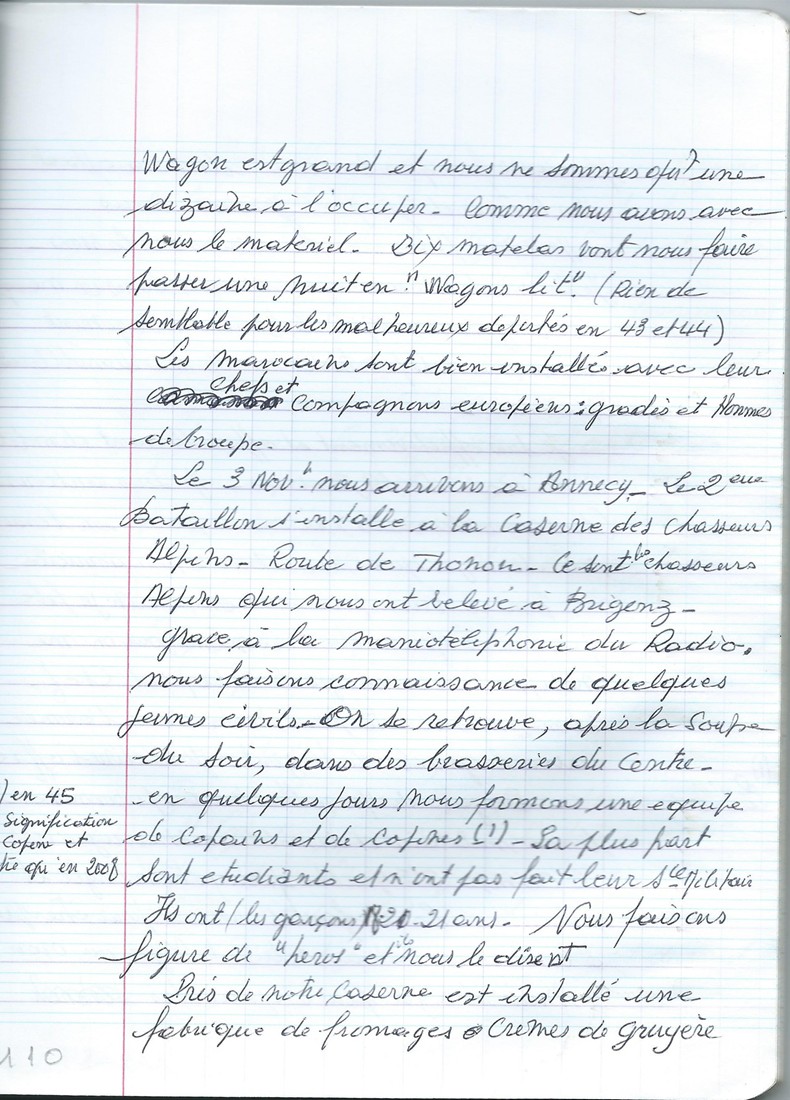 Wagon est grand et nous ne sommes qu'une
dizaine, à l'occuper. Comme nous avons avec
nous le materiel. Dix matelas vont nous faire
passer une nuit en "Wagons lit". (Rien de
semblable pour les malheureux deportés en 43 et 44)
Les marocains sont bien installés avec leur
chefs et
compagnons européens : gradés et Hommes
de troupe.
Le 3 Nov. nous arrivons à Annecy. Le 2eme
Bataillon s'installe à la Caserne des Chasseurs
Alpins - Route de Thonon - Ce sont les chasseurs
Alpins qui nous ont relevé à Brigenz -
grace, à la du Radio.
nous faisons connaissance de quelques
jeunes civils - On se retrouve, après la Soupe
du Soir, dans des brasseries du Centre -
en quelques jours nous formons une equipe
de copains et de copines (1) - La plus part
sont etudiants et n'ont pas fait leur Sce Militair
Ils ont (les garçons) 20.21 ans - Nous faisons
figure de "heros" et ils nous le disent
Près de notre Caserne est installé une
fabrique de fromages Crèmes de gruyère
) en 45
Signification
Copine et
qu'en 2008
110